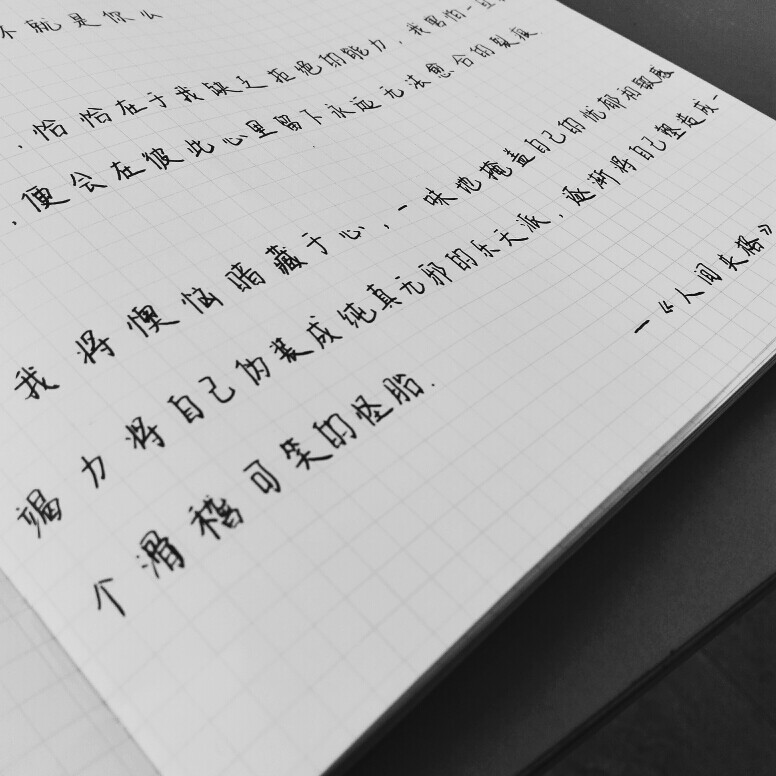 不就是你么
，恰恰在于我缺乏拒绝的能力，我害怕一旦
，便会在彼此心里留下永远无法愈合的裂痕.
我将懊恼暗藏于心，一味地掩盖自己的忧郁和敏感
竭力将自己伪装成纯真无邪的乐天派，逐渐将自己塑造成一
个滑稽可笑的怪胎.
—《人间失格》